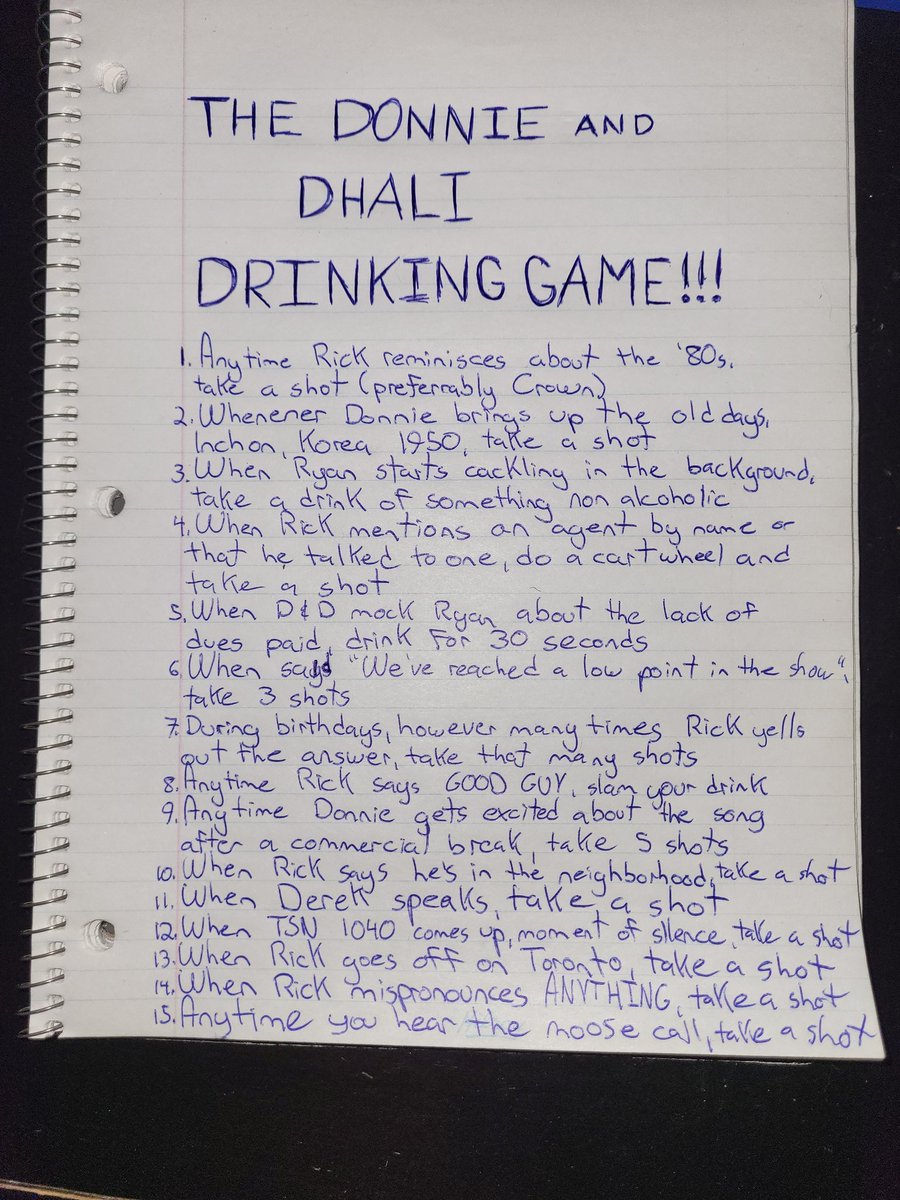 THE DONNIE AND
DHALI
DRINKING GAME!!!
1. Anytime Rick reminisces about the '80s,
take a shot (preferrably Crown)
2. Whenever Donnie brings up the old days,
Inchon, Korea 1950, take a shot
3. When Ryan starts cackling in the background,
take a drink of something non alcoholic
4. When Rick mentions an agent by name or
that he talked to one, do a cartwheel and
take a shot
5. When D&D mock Ryan about the lack of
dues paid, drink for 30 seconds
6. When says "We've reached a low point in the show",
take 3 shots
7. During birthdays, however many times Rick yells
out the answer, take that many shots
8. Anytime Rick says GOOD GUY, slam your drink
9. Anytime Donnie gets excited about the song
after a commercial break, take 5 shots
10. When Rick says he's in the neighborhood, take a shot
11. When Derek speaks, take a shot
12. When TSN 1040 comes up, moment of silence, take a shot
13. When Rick goes off on Toronto, take a shot
14. When Rick mispronounces ANYTHING, take a shot
15. Anytime you hear the moose call, take a shot